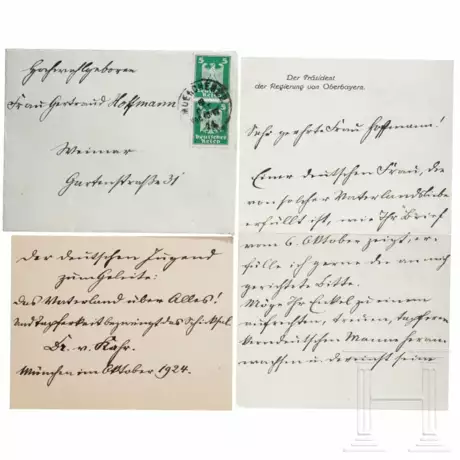 Hochwohlgeboren
Frau Gertraud Hoffmann
Weimar
Gartenstraße 31
5 5
Deutsches Reich
MUENCHEN
Der deutschen Jugend
zum Geleite:
Das Vaterland über Alles!
Und Tapferkeit bezwingt das Schicksal.
Dr. v. Kahr.
München im Oktober 1924.
Der Präsident
der Regierung von Oberbayern.
Sehr geehrte Frau Hoffmann!
Einer deutschen Frau, die
von solcher Vaterlandsliebe
erfüllt ist, wie Ihr Brief
vom 6. Oktober zeigt, er-
fülle ich gerne die an mich
gerichtete Bitte.
Möge Ihr Enkel zu einem
aufrechten, treuen, tapferen
kerndeutschen Manne heran-
wachsen u. dereinst seine